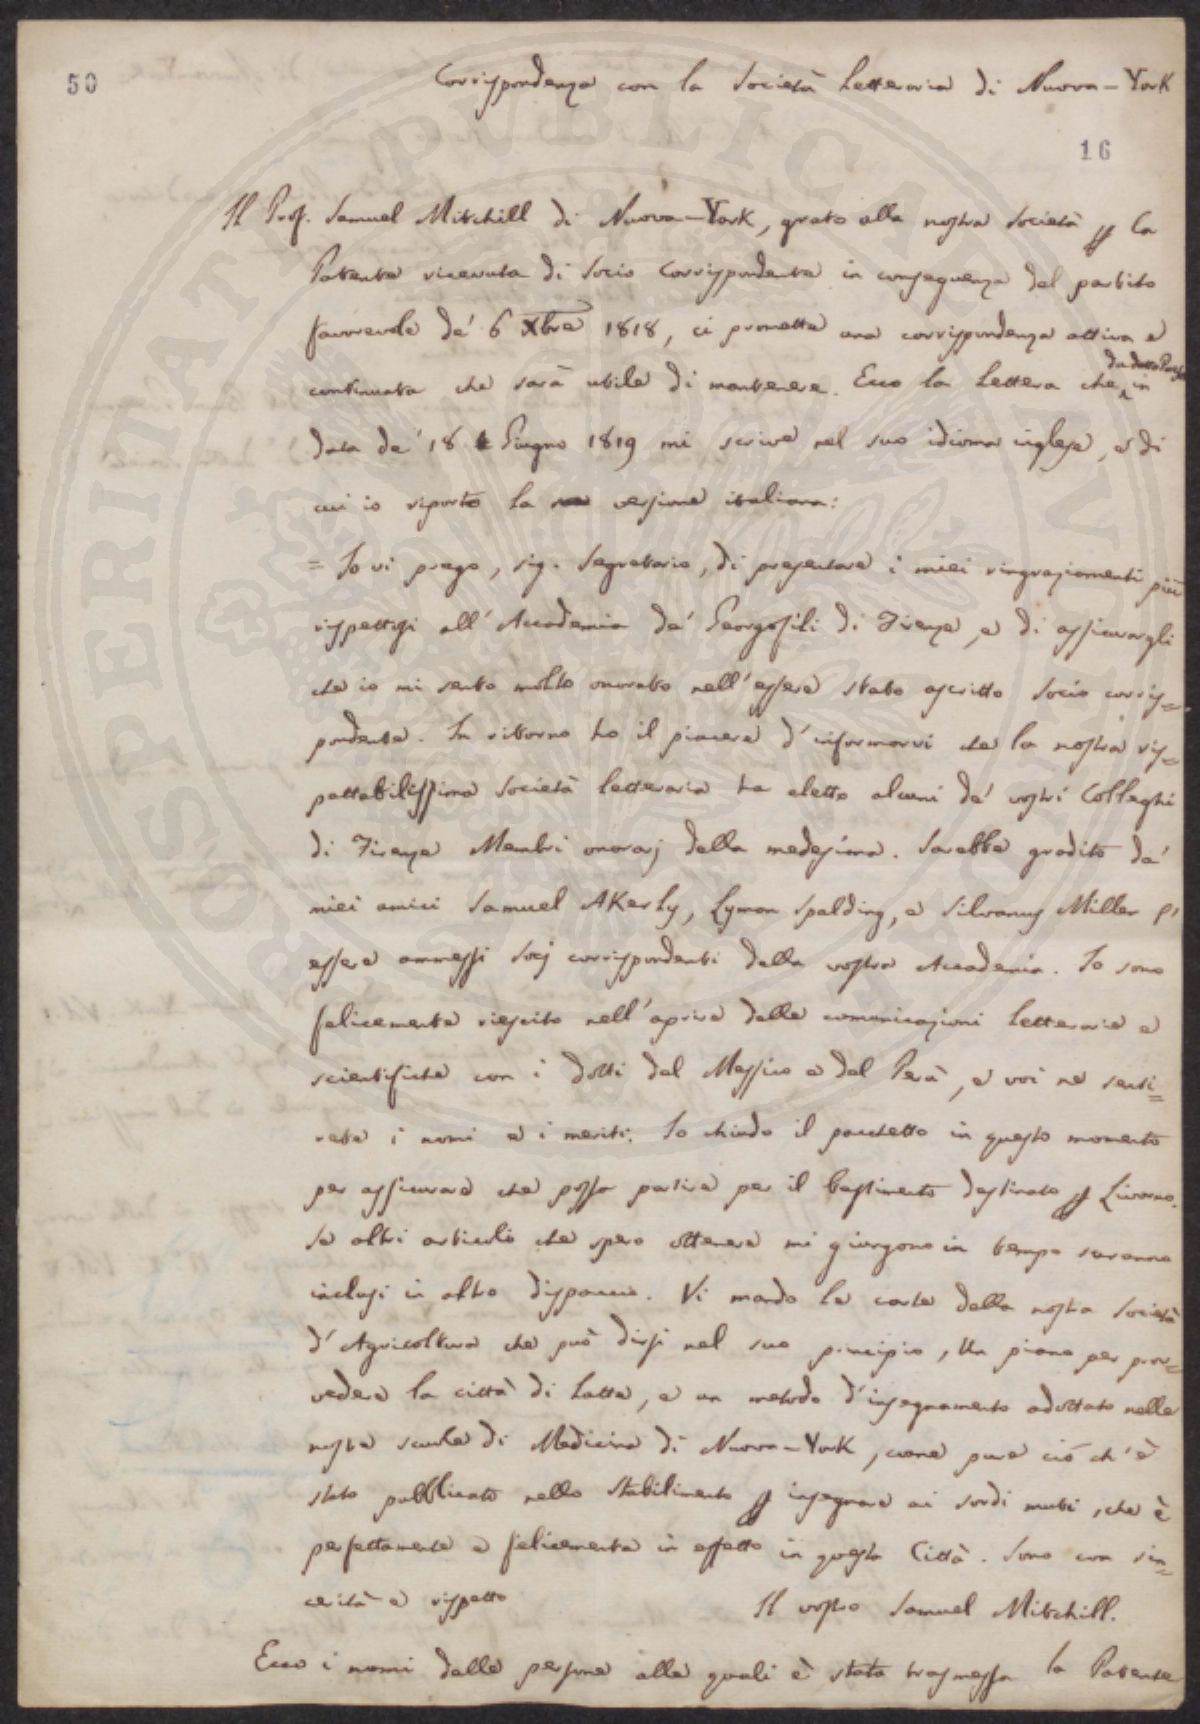 50
Corrispondenza con la Società Letteraria di Nuova-York
16
Il Prof. Samuel Mitchill di Nuova-York, grato alla nostra Società p la
Patente ricevuta di Socio Corrispondente in conseguenza del partito
favorevole de' 6 Xbre 1818, ci promette una corrispondenza attiva e
continuata che sarà utile di mantenere. Ecco la Lettera che in
data de' 18 Giugno 1819 mi scrive nel suo idioma inglese, e di
cui io riporto la versione italiana:
= Io vi prego, sig. Segretario, di presentare i miei ringraziamenti più
rispettosi all' Accademia de' Georgofili di Firenze, e di assicurargli
che io mi sento molto onorato nell' essere stato ascritto Socio corris=
pondente. In ritorno ho il piacere d' informarvi che la nostra ris=
pettabilissima Società Letteraria ha eletto alcuni de' vostri Colleghi
di Firenze Membri onorarj della medesima. Sarebbe gradito da'
miei amici Samuel Akerly, Lyman Spalding, e Silvanus Miller
essere ammessi Socj corrispondenti della vostra Accademia. Io sono
felicemente riescito nell' aprire delle comunicazioni letterarie e
scientifiche con i dotti del Messico e del Perù, e voi ne senti=
rete i nomi e i meriti. Io chiudo il pacchetto in questo momento
per assicurare che possa partire per il bastimento destinato p Livorno.
Se altri articoli che spero ottenere mi giungono in tempo saranno
inclusi in altro dispaccio. Vi mando le carte della nostra Società
d' Agricoltura che può dirsi nel suo principio, Un piano per prov=
vedere la città di Latte, e un metodo d' insegnamento adottato nelle
nostre scuole di Medicina di Nuova-York, come pure ciò ch' è
stato pubblicato nello Stabilimento p insegnare ai sordi muti, che è
perfettamente e felicemente in effetto in questa Città. Sono con sin=
cerità e rispetto
Il vostro Samuel Mitchill.
Ecco i nomi delle persone alle quali è stata trasmessa la Patente